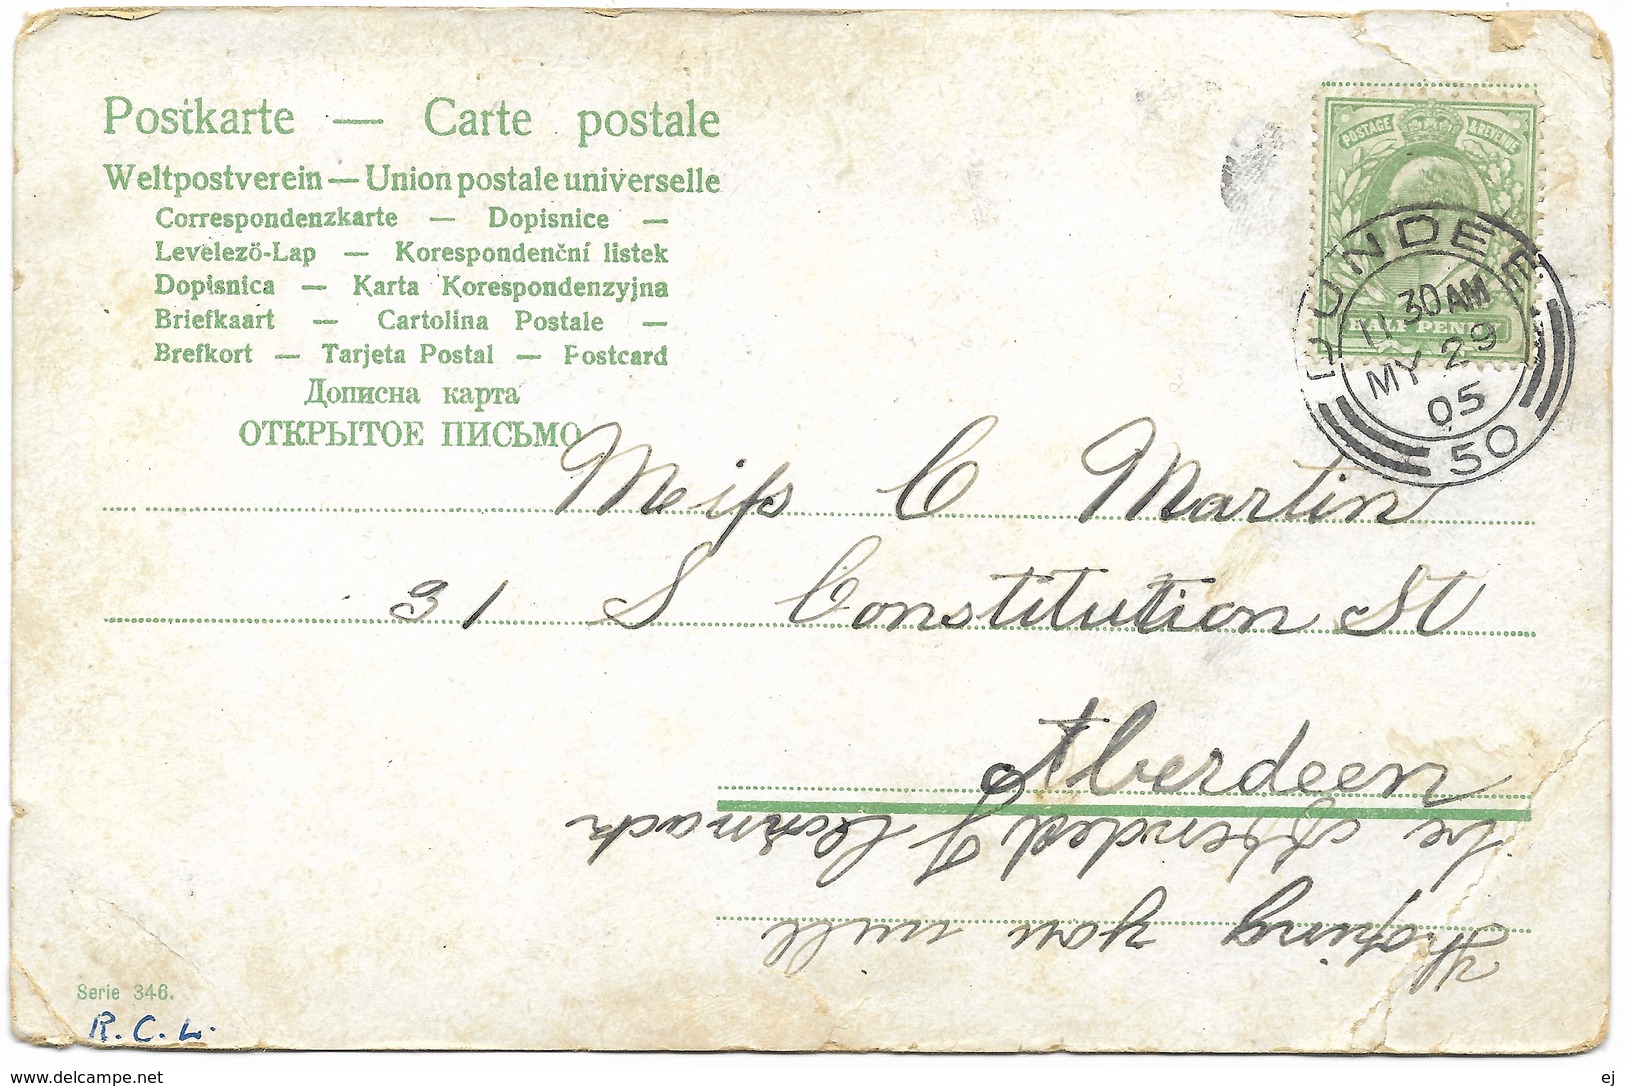 Postkarte — Carte postale
Weltpostverein — Union postale universelle
Correspondenzkarte — Dopisnice —
Levelező-Lap — Korespondenční listek
Dopisnica — Karta Korespondenzyjna
Briefkaart — Cartolina Postale —
Brefkort — Tarjeta Postal — Postcard
Дописна карта
ОТКРЫТОЕ ПИСЬМО
POSTAGE & REVENUE
HALF PENNY
DUNDEE
11 30 AM
MY 29
05
50
Meiss C Martin
31 S Constitution St
Aberdeen
Hoping you will
be
Serie 346.
R.C.L.
www.delcampe.net
ej